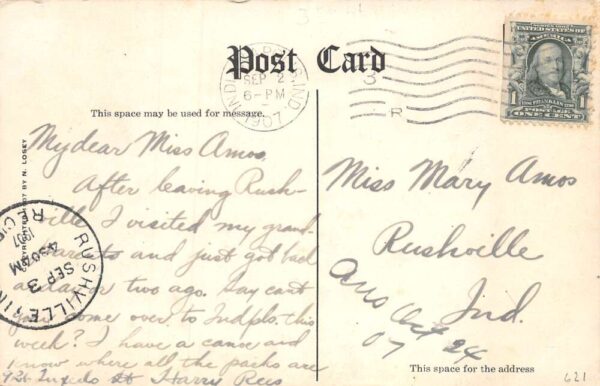 Post Card
INDIANAPOLIS, IND.
SEP 2
6-PM
1907
3
R
SERIES 1902
UNITED STATES OF AMERICA
1 FRANKLIN 1
POSTAGE
ONE CENT
This space may be used for message.
My dear Miss Amos,
After leaving Rush-
ville I visited my grand-
and just got back
a day or two ago. Say can't
you come over to Indpls. this
week? I have a canoe and
know where all the parks are
926 Tuxedo St Harry Rees
COPYRIGHTED 1907 BY N. LOSEY
RUSHVILLE IND
REC'D
SEP 3
1907
Miss Mary Amos
Rushville
Ind.
Ans Oct 24
07
This space for the address
621